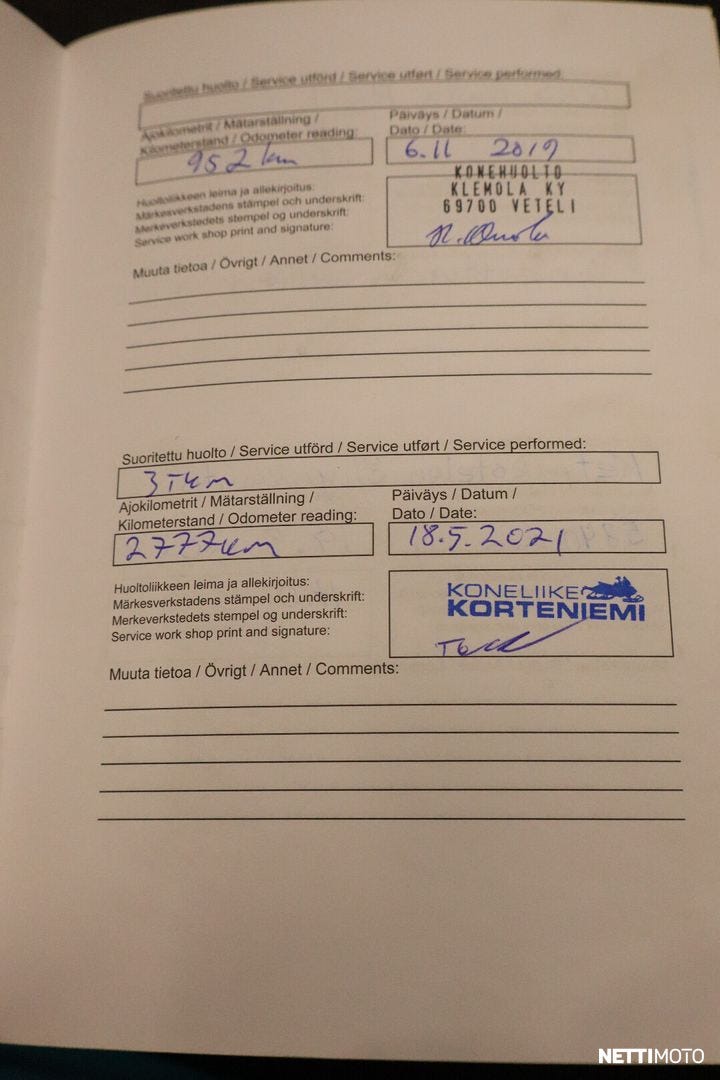 Suoritettu huolto / Service utförd / Service utført / Service performed:
Ajokilometrit / Mätarställning /
Kilometerstand / Odometer reading:
952 km
Päiväys / Datum /
Dato / Date:
6.11 2019
Huoltoliikkeen leima ja allekirjoitus:
Märkesverkstadens stämpel och underskrift:
Merkeverkstedets stempel og underskrift:
Service work shop print and signature:
KONEHUOLTO
KLEMOLA KY
69700 VETELI
Muuta tietoa / Övrigt / Annet / Comments:
Suoritettu huolto / Service utförd / Service utført / Service performed:
3Tkm
Ajokilometrit / Mätarställning /
Kilometerstand / Odometer reading:
2777km
Päiväys / Datum /
Dato / Date:
18.5.2021
Huoltoliikkeen leima ja allekirjoitus:
Märkesverkstadens stämpel och underskrift:
Merkeverkstedets stempel og underskrift:
Service work shop print and signature:
KONELIIKE
KORTENIEMI
Muuta tietoa / Övrigt / Annet / Comments:
NETTIMOTO